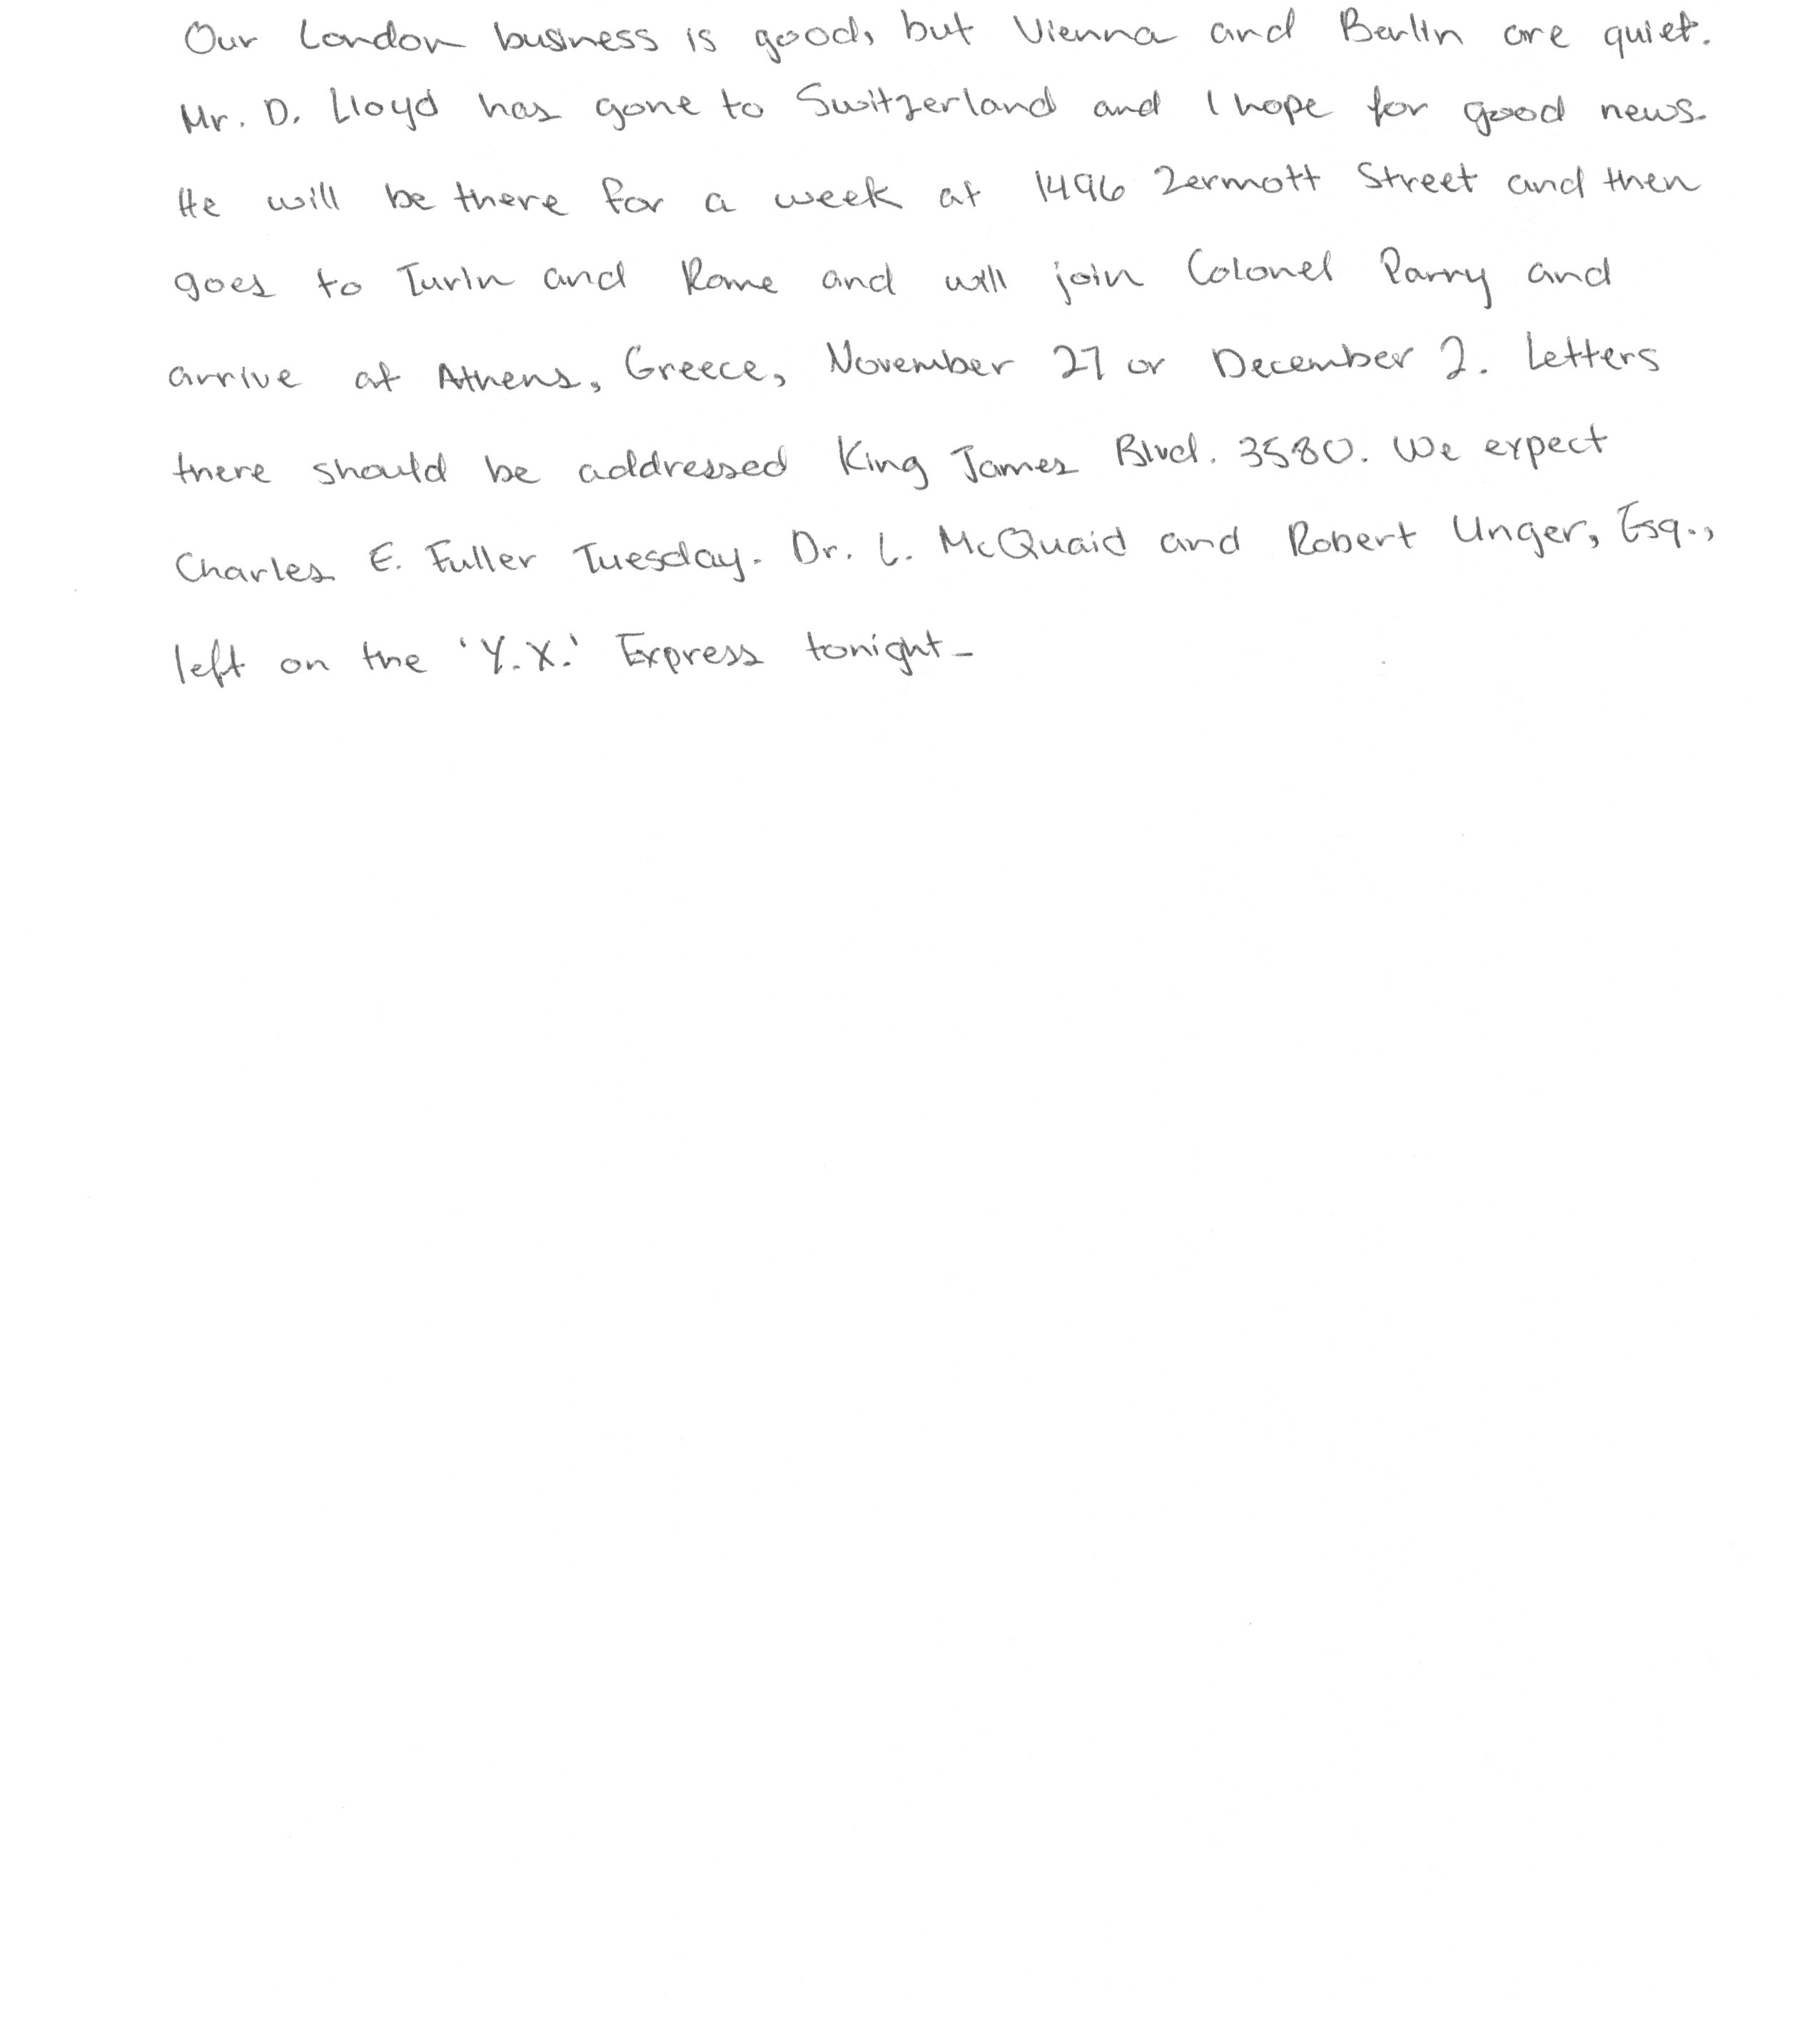 Our London business is good, but Vienna and Berlin are quiet.
Mr. D. Lloyd has gone to Switzerland and I hope for good news.
He will be there for a week at 1496 Zermott Street and then
goes to Turin and Rome and will join Colonel Parry and
arrive at Athens, Greece, November 27 or December 2. Letters
there should be addressed King James Blvd. 3580. We expect
Charles E. Fuller Tuesday. Dr. L. McQuaid and Robert Unger, Esq.,
left on the 'Y.X.' Express tonight.